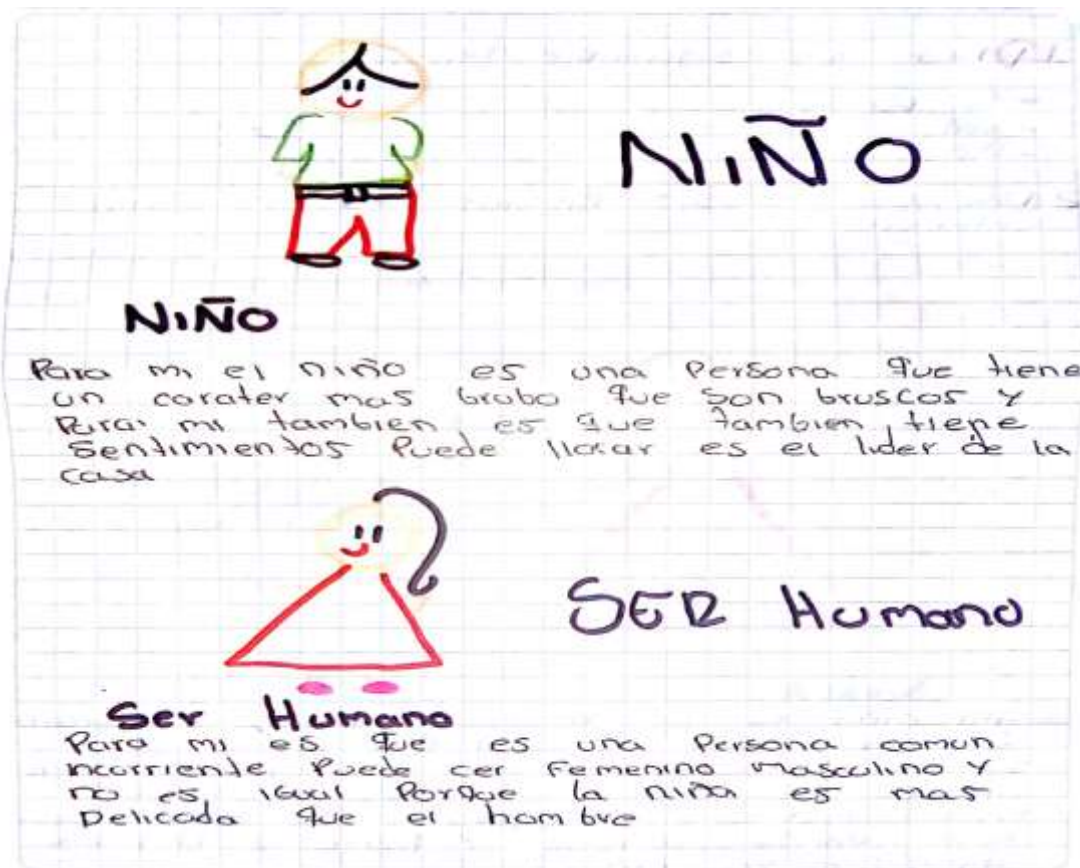 NIÑO
NIÑO
Para mi el niño es una Persona que tiene
un carater mas brabo que son bruscos y
Para mi tambien es que tambien tiene
Sentimientos Puede llorar es el lider de la
casa
SER Humano
Ser Humano
Para mi es que es una Persona comun
incorriente Puede cer Femenino Masculino y
no es igual Porque la niña es mas
Delicada que el hombre